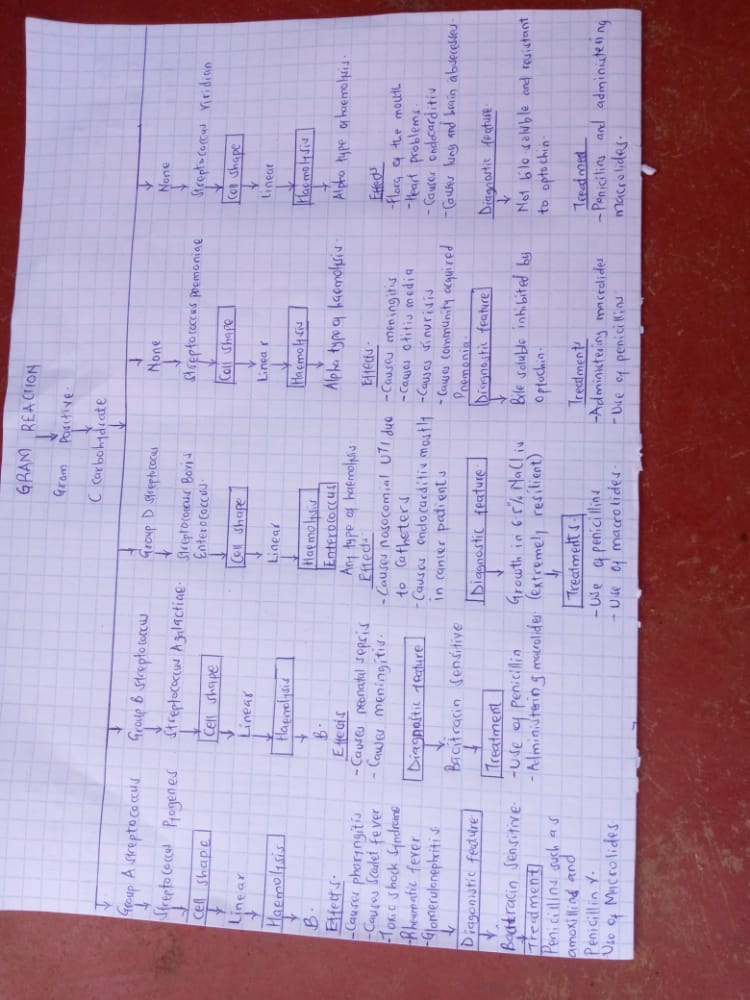 GRAM REACTION
Gram Positive.
C Carbohydrate
Group A streptococcus
Streptococcus Pyogenes
Cell shape
Linear
Haemolysis
B.
Effects.
-Causes pharyngitis
-Causes Scalet fever
-Toxic shock syndrome
-Rheumatic fever
-Glomerulonephritis
Diagonistic feature
Bactracin Sensitive.
Treatment
Penicillins such as
amoxillins and
Penicillin V.
Use of Macrolides
Group B streptococcus
Streptococcus Agalactiae.
Cell shape
Linear
Haemolysis
B.
Effects
-Causes neonatal sepsis
-Causes meningitis.
Diagnostic feature
Bacitracin sensitive
Treatment
-Use of Penicillin
-Administering macrolides
Group D streptococcus
Streptococcus Bovis
Enterococcus.
Cell shape
Linear
Haemolysis
Enterococcus
Any type of haemolysis
Effects
-Causes nosocomial UTI due
to Catheters
-Causes endocarditis mostly
in cancer patients
Diagnostic feature.
Growth in 6.5% NaCl is
(extremely resilient)
Treatments.
-Use of penicillins
-Use of macrolides.
None
Streptococcus pneomoniae
Cell shape
Linear
Haemolysis
Alpha type of haemolysis.
Effects.
-Causes meningitis
-Causes otitis media
-Causes sinurisis
-Causes community acquired
Pnemonia.
Diagnostic feature
Bile soluble inhibited by
optochin.
Treatments
-Administering macrolides
-Use of penicillins
None
Streptococcus Viridian
Cell shape
Linear
Haemolysis
Alpha type of haemolysis.
Effects
-Flora of the mouth
-Heart problems.
-Causes endocarditis
-Causes lung and brain abscesses.
Diagnostic feature.
Not bile soluble and resistant
to optochin.
Treatment
-Penicilins and administering
macrolides.